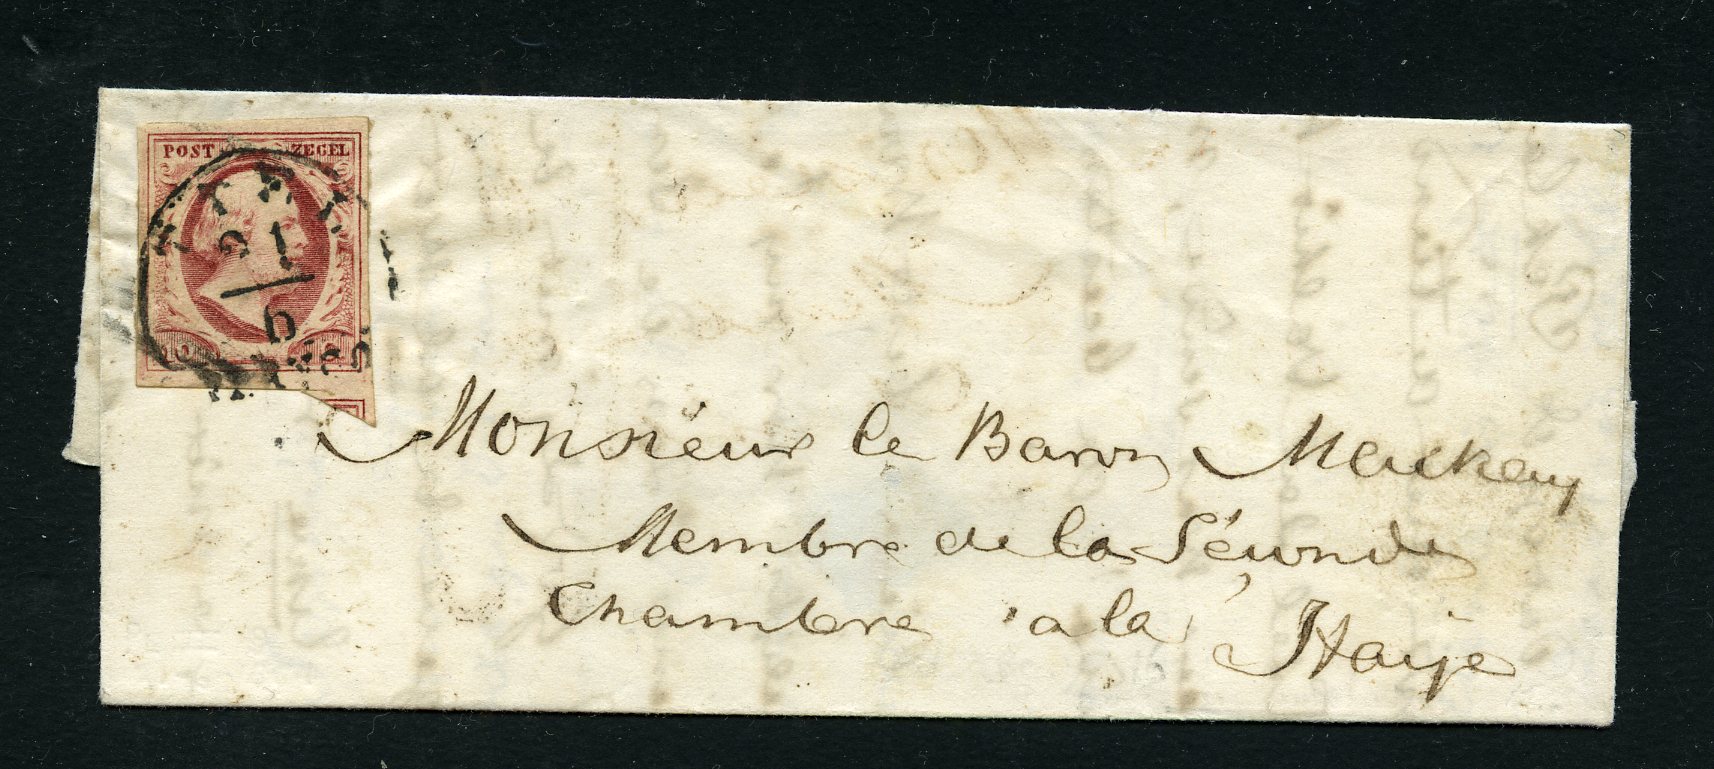 POST ZEGEL
21
6
10
Monsieur le Baron Mackay
Membre de la Séconde
Chambre a la Haije